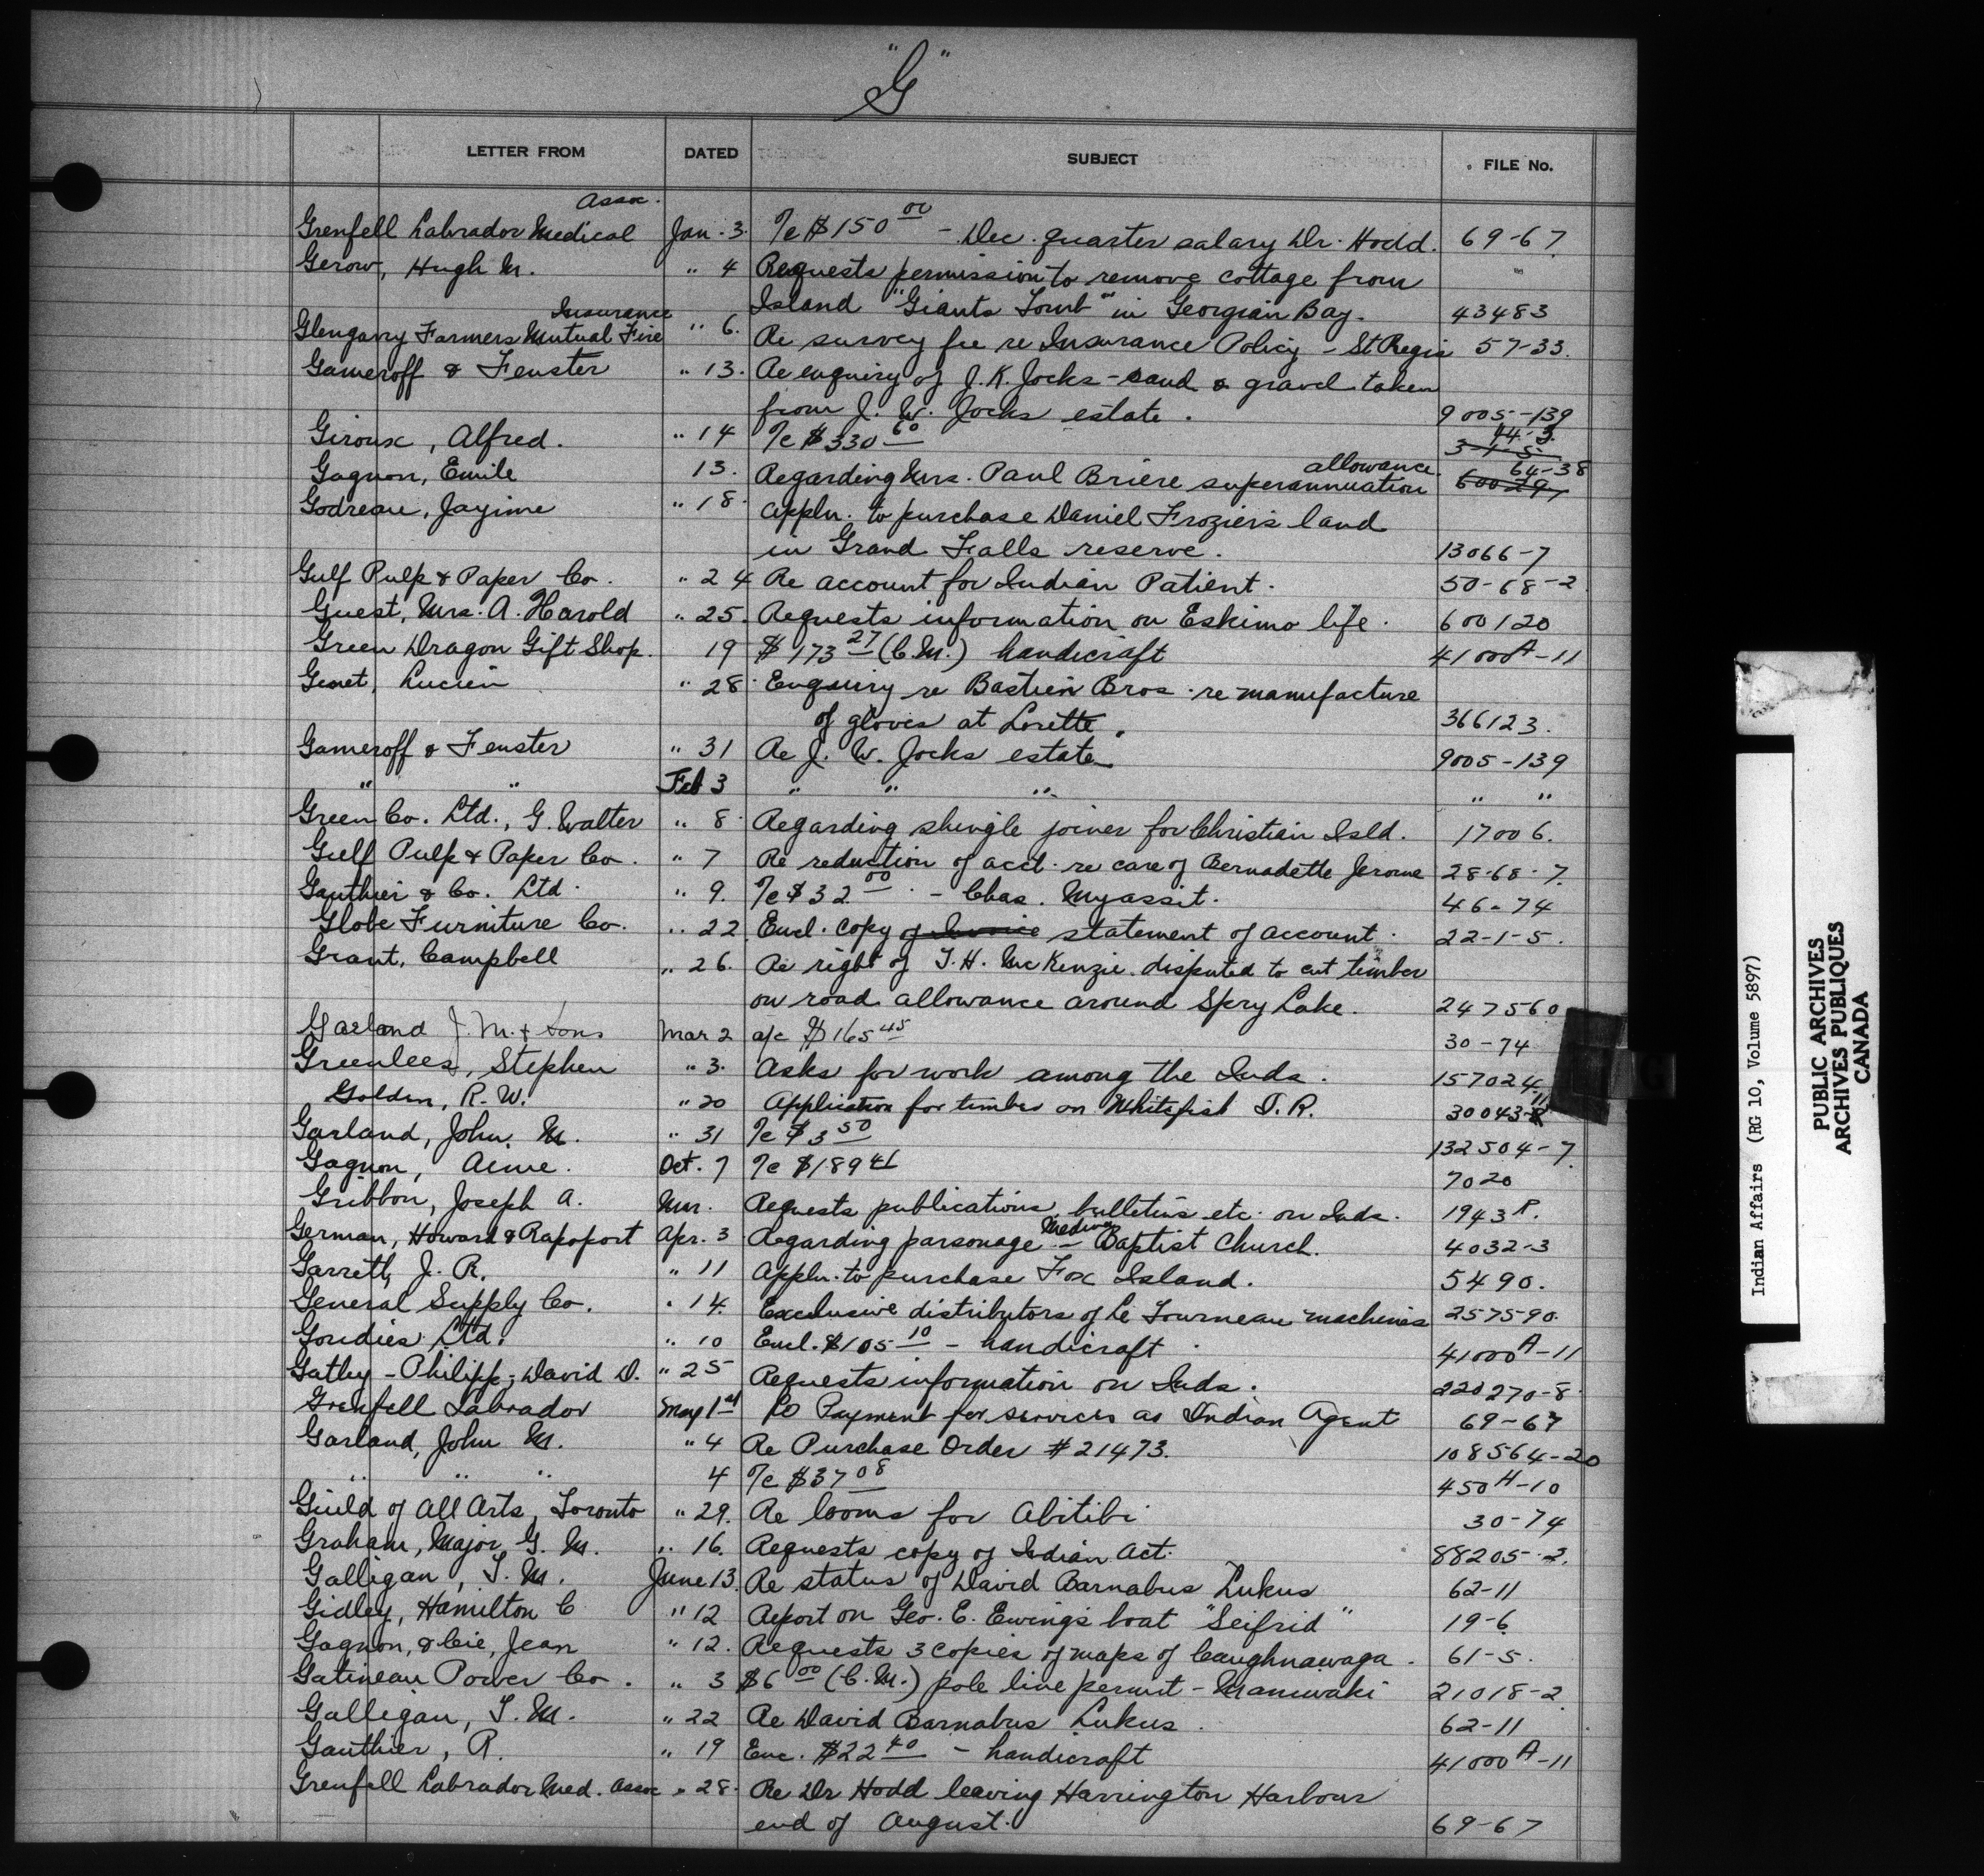 "G"
LETTER FROM DATED SUBJECT FILE No.
Assoc.
Grenfell Labrador Medical Jan. 3. a/c $150 00 - Dec. quarter salary Dr. Hodd. 69-67
Gerow, Hugh M. " 4 Requests permission to remove cottage from "
Island "Giants Tomb" in Georgian Bay. 43483
Insurance
Glengarry Farmers Mutual Fire " 6. Re survey fee re Insurance Policy - St Regis 57-33.
Gameroff & Fenster " 13. Re enquiry of J. K. Jocks - sand & gravel taken
from J. W. Jocks estate. 9005-139
Giroux, Alfred. " 14 a/c $330 60 44-3. 3-1-5.
allowance. 64-38
Gagnon, Emile 13. Regarding Mrs. Paul Briere superannuation 60029
Godreau, Jayime " 18. Appln. to purchase Daniel Frozier's land
in Grand Falls reserve. 13066-7
Gulf Pulp & Paper Co. " 24 Re account for Indian Patient. 50-68-2
Guest, Mrs. A. Harold " 25. Requests information on Eskimo life. 600120
Green Dragon Gift Shop. 19 $173 27 (C.M.) handicraft 41000A-11
Genet, Lucien " 28. Enquiry re Bastien Bros. re manufacture
of gloves at Lorette. 366123.
Gameroff & Fenster " 31 Re J. W. Jocks estate 9005-139
" " Feb 3 " " " " "
Green Co. Ltd., G. Walter " 8. Regarding shingle joiner for Christian Isld. 17006.
Gulf Pulp & Paper Co. " 7 Re reduction of acct. re care of Bernadette Jerome 28-68-7.
Gauthier & Co. Ltd. " 9. a/c $32 00 - Chas. Myassit. 46-74
Globe Furniture Co. " 22. Encl. copy of Invoice statement of account. 22-1-5.
Grant, Campbell " 26. Re right of T. H. McKenzie disputed to cut timber
on road allowance around Spry Lake. 247560
Garland J. M. & Sons Mar 2 a/c $165 45 30-74
Greenlees, Stephen " 3. Asks for work among the Inds. 157024
Golden, R. W. " 20 Application for timber on Whitefish I. R. 30043-11
Garland, John M. " 31 a/c $3 50 132504-7
Gagnon, Aime. Oct. 7 a/c $189 41 7020
Gribbon, Joseph A. Mar. Requests publications, bulletins etc. on Inds. 1943 R.
German, Howard & Rapoport Apr. 3 Regarding parsonage - Medina Baptist Church. 4032-3
Garrett, J. R. " 11 Appln. to purchase Fox Island. 5490.
General Supply Co. " 14. Exclusive distributors of Le Tourneau machines 257590.
Goudies Ltd. " 10 Encl. $105 10 - handicraft 41000A-11
Gathy-Philipp, David D. " 25 Requests information on Inds. 220270-8
Grenfell Labrador May 1st Re Payment for services as Indian Agent 69-67
Garland, John M. " 4 Re Purchase Order #21473. 108564-20
" " " 4 a/c $37 08 450H-10
Guild of All Arts, Toronto " 29. Re looms for Abitibi 30-74
Graham, Major G. M. " 16. Requests copy of Indian Act. 88205-2.
Galligan, T. M. June 13. Re status of David Barnabus Lukus 62-11
Gidley, Hamilton C " 12 Report on Geo. E. Ewing's boat "Seifrid" 19-6
Gagnon, & Cie, Jean " 12. Requests 3 copies of maps of Caughnawaga. 61-5.
Gatineau Power Co. " 3 $6 00 (C.M.) pole line permit - Maniwaki 21018-2
Galligan, T. M. " 22 Re David Barnabus Lukus. 62-11
Gauthier, R. " 19 Enc. $22 40 - handicraft 41000A-11
Grenfell Labrador Med. Assoc " 28. Re Dr Hodd leaving Harrington Harbour
end of August. 69-67
Indian Affairs (RG 10, Volume 5897)
PUBLIC ARCHIVES
ARCHIVES PUBLIQUES
CANADA